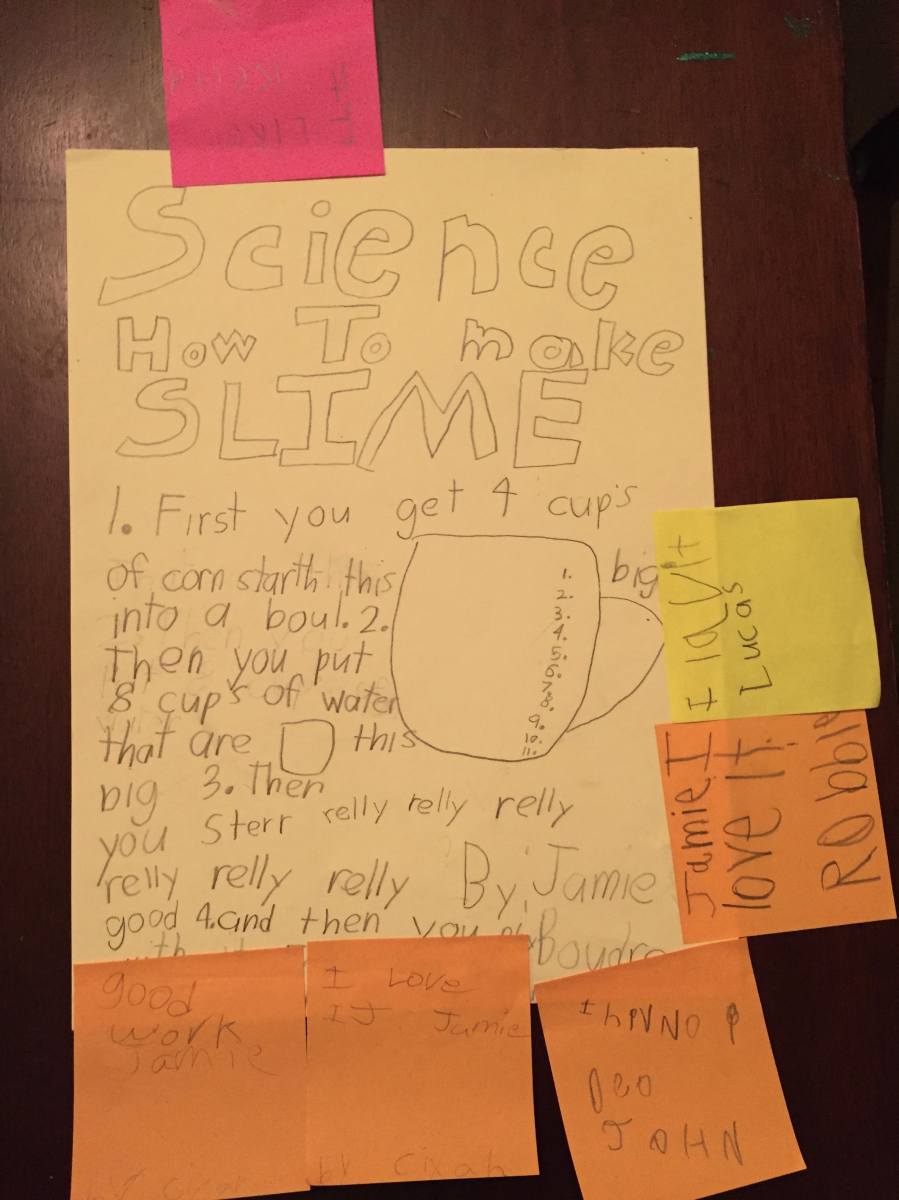 Science
How To make
SLIME
1. First you get 4 cup's
of corn starth this big
into a boul. 2.
Then you put
8 cup's of water
that are this
big 3. Then
you Sterr relly relly relly
relly relly relly By, Jamie
good 4. and then you
Boudre
1.
2.
3.
4.
5.
6.
7.
8.
9.
10.
11.
I laV it
Lucas
Jamie I
love It.
Robbie
good
work
Jamie
I Love
IT Jamie
by cixah
JOHN